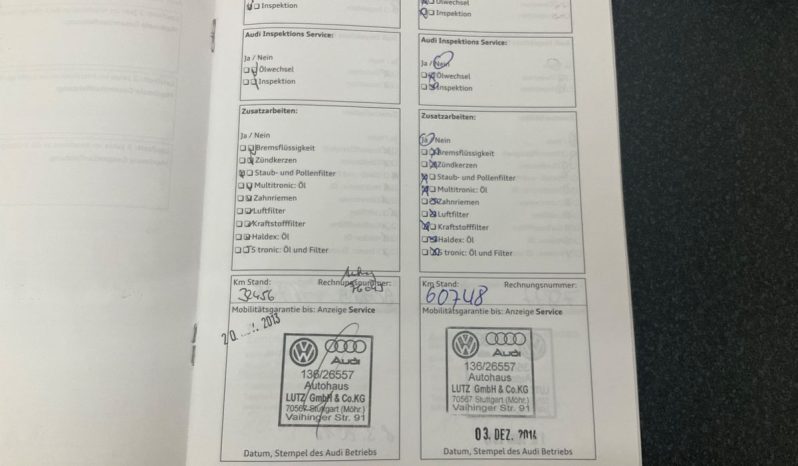 Inspektion
Audi Inspektions Service:
Ja / Nein
Ölwechsel
Inspektion
Zusatzarbeiten:
Ja / Nein
Bremsflüssigkeit
Zündkerzen
Staub- und Pollenfilter
Multitronic: Öl
Zahnriemen
Luftfilter
Kraftstofffilter
Haldex: Öl
S tronic: Öl und Filter
Km Stand: Rechnungsnummer:
32456
Mobilitätsgarantie bis: Anzeige Service
2013
Audi
136/26557
Autohaus
LUTZ GmbH & Co.KG
70567 Stuttgart (Möhr.)
Vaihinger Str. 91
Datum, Stempel des Audi Betriebs
Ölwechsel
Inspektion
Audi Inspektions Service:
Ja / Nein
Ölwechsel
Inspektion
Zusatzarbeiten:
Ja / Nein
Bremsflüssigkeit
Zündkerzen
Staub- und Pollenfilter
Multitronic: Öl
Zahnriemen
Luftfilter
Kraftstofffilter
Haldex: Öl
S tronic: Öl und Filter
Km Stand: Rechnungsnummer:
60748
Mobilitätsgarantie bis: Anzeige Service
Audi
136/26557
Autohaus
LUTZ GmbH & Co.KG
70567 Stuttgart (Möhr.)
Vaihinger Str. 91
03. DEZ. 2014
Datum, Stempel des Audi Betriebs